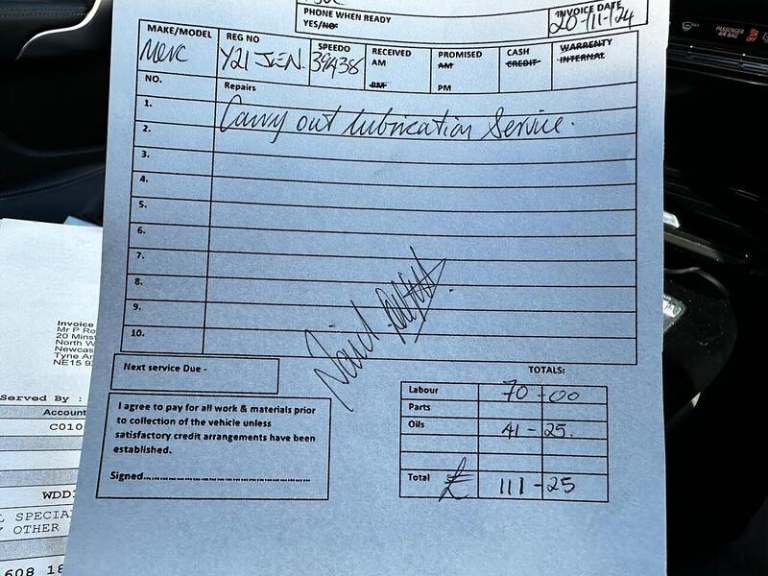 PHONE WHEN READY
YES/NO:
INVOICE DATE
20-11-24
MAKE/MODEL
Merc
REG NO
Y21 JEN.
SPEEDO
39A386
RECEIVED
AM
PM
PROMISED
AM
PM
CASH
CREDIT
WARRENTY
INTERNAL
NO.
Repairs
1.
Carry out lubrication Service.
2.
3.
4.
5.
6.
7.
8.
9.
10.
Next service Due -
I agree to pay for all work & materials prior
to collection of the vehicle unless
satisfactory credit arrangements have been
established.
Signed
TOTALS:
Labour 70-00
Parts
Oils 41-25.
Total £ 111-25
Invoice
Mr P Ro
20 Minst
North W
Newcas
Tyne An
NE15 9
Served By :
Account
C010
WDD
L SPECIA
Y OTHER
608 18